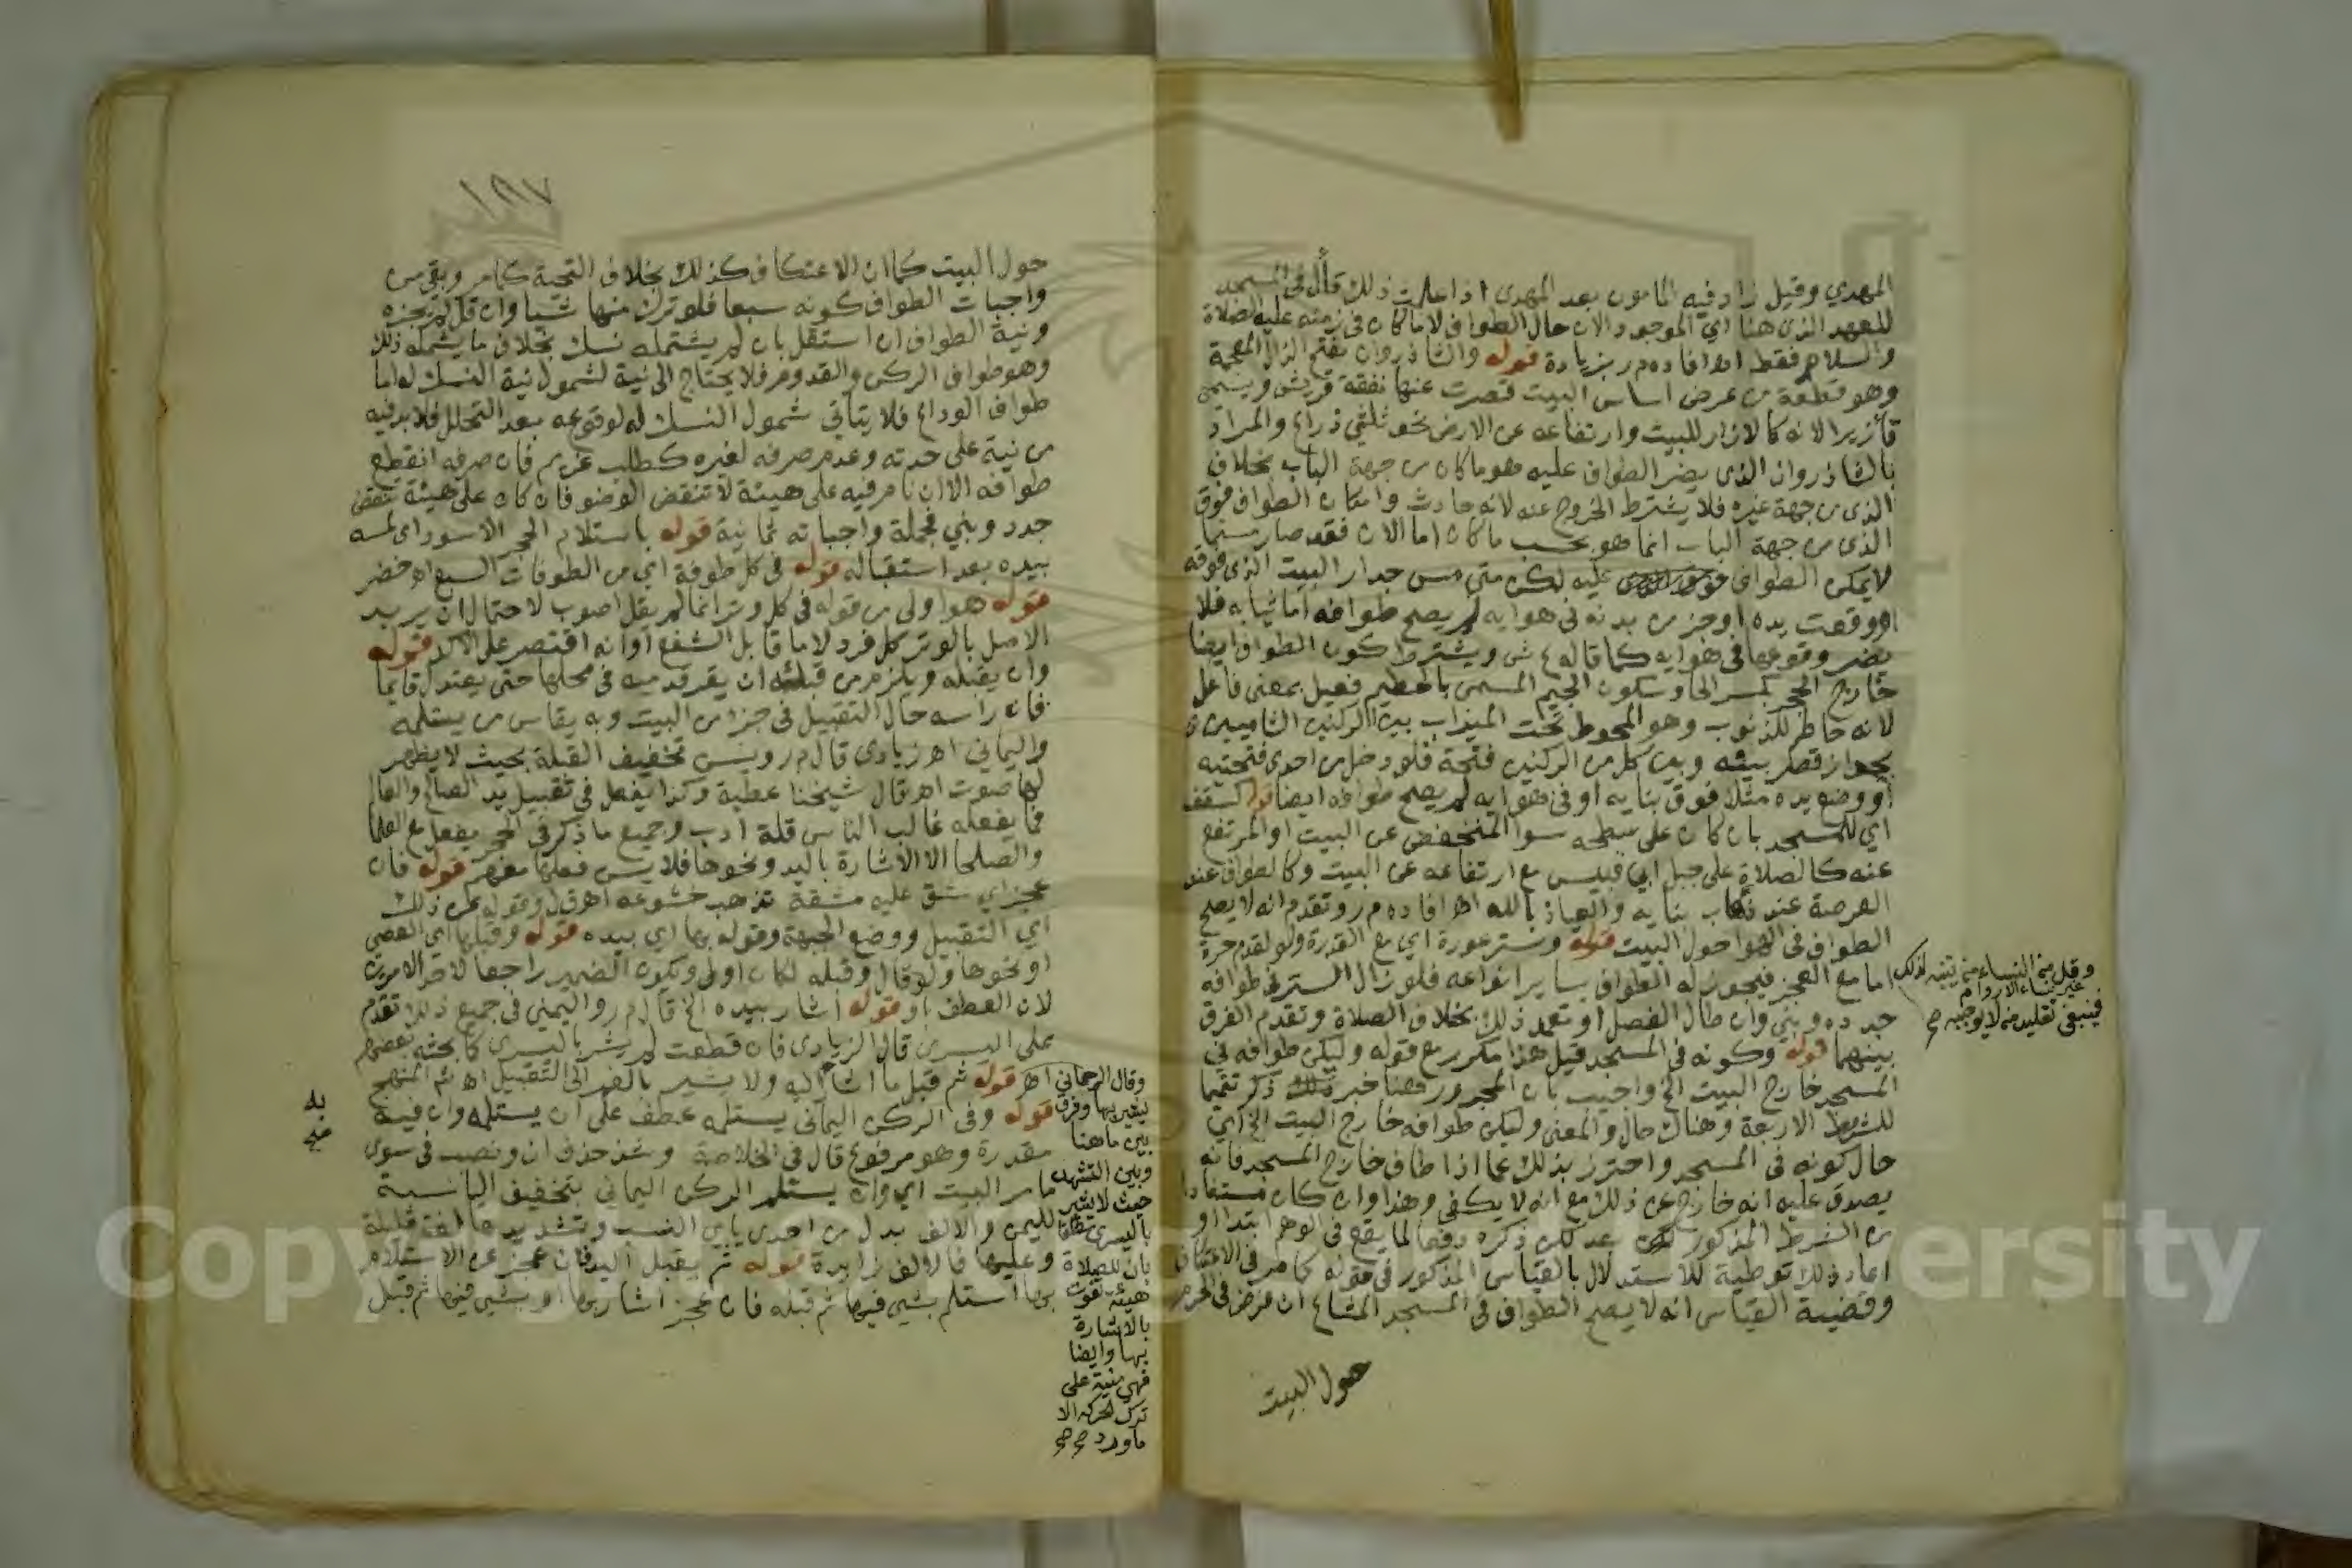 المهدي وقيل زاد فيه المامون بعد المهدي اذا علمت ذلك قال في المسجد
للعهد الذي هنا اي الموجود الان حال الطواف لا ما كان في زمنه عليه الصلاة
والسلام فقط اهـ افاده م ر بزيادة قوله والشاذروان بفتح الذال المعجمة
وهو قطعة من عرض اساس البيت قصرت عنها نفقة قريش ويسمى
تأزيرا لانه كالازار للبيت وارتفاعه عن الارض نحو ثلثي ذراع والمراد
بالشاذروان الذي يضر الطواف عليه هو ما كان من جهة الباب بخلاف
الذي من جهة غيره فلا يشترط الخروج عنه لانه حادث وامكان الطواف فوق
الذي من جهة الباب انما هو بحسب ما كان اما الان فقد صار مسنما
لا يمكن الطواف عليه لكن متى مس جدار البيت الذي فوقه
او وقعت يده او جزء من بدنه في هوايه لم يصح طوافه اما ثيابه فلا
يضر وقوعها في هوايه كما قاله ع ش ويشترط كون الطواف ايضا
خارج الحجر بكسر الحا وسكون الجيم المسمى بالحطيم فعيل بمعنى فاعل
لانه حاطم للذنوب وهو المحوط تحت الميزاب بين الركنين الشاميين
بجدار قصير بينه وبين كل من الركنين فتحة فلو دخل من احدى فتحتيه
او وضع يده مثلا فوق بنايه او في هوايه لم يصح طوافه ايضا قوله كسقف
اي للمسجد بان كان على سطحه سوا المنخفض عن البيت او المرتفع
عنه كالصلاة على جبل ابي قبيس مع ارتفاعه عن البيت وكالطواف عند
العرصة عند ذهاب بنايه والعياذ بالله اهـ افاده م ر وتقدم انه لا يصح
الطواف في الهوا حول البيت قوله وستر عورة اي مع القدرة ولو لقدم حرة
اما مع العجز فيجوز له الطواف بساير انواعه فلو زال الستر في طوافه
جدده وبني وان طال الفصل او تعمد ذلك بخلاف الصلاة وتقدم الفرق
بينهما قوله وكونه في المسجد قيل هذا مكرر مع قوله وليكن طوافه في
المسجد خارج البيت الخ واجيب بان المجرور هنا خبر ذكر تتميما
للشروط الاربعة وهناك حال والمعنى وليكن طوافه خارج البيت الخ اي
حال كونه في المسجد واحترز بذلك عما اذا طاف خارج المسجد فانه
يصدق عليه انه خارج عن ذلك مع انه لا يكفي وهذا وان كان مستفادا
من الشرط المذكور بعد لكن ذكره دفعا لما يقع في الوهم ابتدا او
اعاد ذلك توطية للاستدلال بالقياس المذكور في قوله كما مر في الاعتكاف
وقضية القياس انه لا يصح الطواف في المسجد المشاع ان فرض في الحرم
حول البيت
وقل من النساء من يتنبه لذلك
غير نساء الاروام
فينبغي تقليد من لا يوجبه صح
١٨٧
حول البيت كما ان الاعتكاف كذلك بخلاف التحية كما مر وبقي من
واجبات الطواف كونه سبعا فلو ترك منها شيا وان قل لم يجزه
ونية الطواف ان استقل بان لم يشتمله نسك بخلاف ما يشتمله ذلك
وهو طواف الركن والقدوم فلا يحتاج الى نية لشمول نية النسك له اما
طواف الوداع فلا يتاتى شمول النسك له لوقوعه بعد التحلل فلا بد فيه
من نية على حدته وعدم صرفه لغيره كطلب غريم فان صرفه انقطع
طوافه الا ان نام فيه على هيئة لا تنقض الوضو فان كان على هيئة تنقض
جدد وبني فجملة واجباته ثمانية قوله باستلام الحجر الاسود اي لمسه
بيده بعد استقباله قوله في كل طوفة اي من الطوفات السبع اهـ خضر
قوله هو اولى من قوله في كل وتر انما لم يقل اصوب لاحتمال ان يريد
الاصل بالوتر كل فرد لا ما قابل الشفع او انه اقتصر على الاكد قوله
وان يقبله ويلزم من قبله ان يقر قدميه في محلها حتى يعتدل قايما
فان راسه حال التقبيل في جزء من البيت وبه يقاس من يستلمه
واليماني اهـ زيادي قال م ر ويسن تخفيف القبلة بحيث لا يظهر
لها صوت اهـ قال شيخنا عطية وكذا يفعل في تقبيل يد الصالح والعالم
فما يفعله غالب الناس قلة ادب وجميع ما ذكر في الحجر يفعل مع العلما
والصلحا الا الاشارة باليد ونحوها فلا يسن فعلها معهم قوله فان
عجز اي شق عليه مشقة تذهب خشوعه اهـ ق ل وقوله عن ذلك
اي التقبيل ووضع الجبهة وقوله بها اي بيده قوله وقبلها اي العصى
او نحوها ولو قال وقبله لكان اولى ويكون الضمير راجعا لاحد الامرين
لان العطف او قوله اشار بيده الخ قال م ر واليمنى في جميع ذلك تقدم
على اليسرى قال الزيادي فان قطعت لم يشر باليسرى كما بحثه بعضهم
اهـ قوله ثم قبل ما اشار اليه ولا يشير بالفم الى التقبيل اهـ ثم المنهج
قوله وفي الركن اليماني يستلمه عطف على ان يستلمه وان فيه
مقدرة وهو مرفوع قال في الخلاصة وشذ حذف ان ونصب في سوى
ما مر البيت اي وان يستلم الركن اليماني بتخفيف اليا نسبة
لليمن والالف بدل من احدى يائي النسب وتشديدها لغة قليلة
وعليها فالالف زايدة قوله ثم يقبل اليد فان عجز عن الاستلام
بها استلم بشيء فيها ثم قبله فان عجز اشار بها او بشيء فيها ثم قبل
وقال الرحماني
يشير بها وفرق
بين ما هنا
وبين التشهد
حيث لا يشير
باليسرى مطلقا
بان للصلاة
هيئة تفوت
بالاشارة
بها وايضا
فهي مبنية على
ترك الحركة الا
ما ورد صح صح